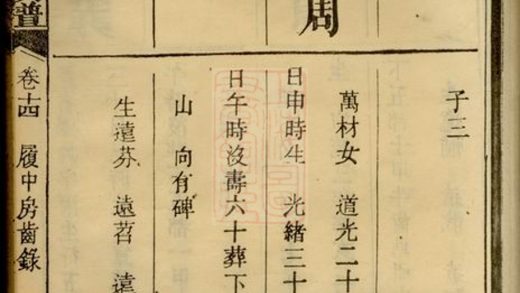 子三
周
萬材女 道光二十
日申時生 光緒三十
日午時沒壽六十葬下
山 向有碑
生遠芬 遠苕 遠
譜
卷十四 履中房齒錄